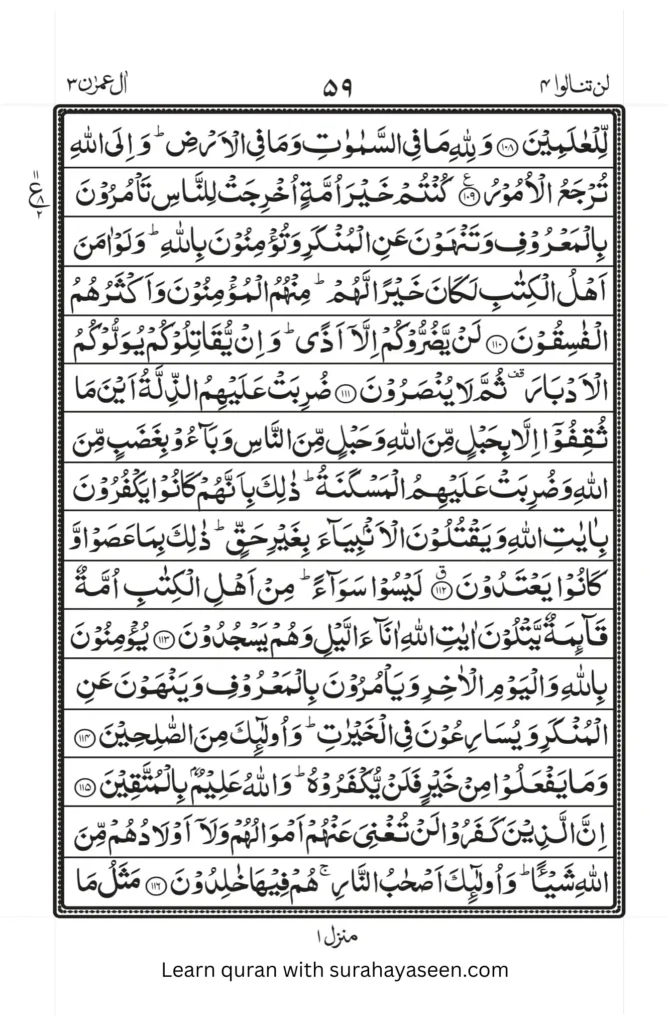 لن تنالوا ۴ ۵۹ اٰل عمرٰن ۳
لِّلْعٰلَمِیْنَ ۝۱۰۸ وَ لِلّٰهِ مَا فِی السَّمٰوٰتِ وَ مَا فِی الْاَرْضِ ؕ وَ اِلَی اللّٰهِ
تُرْجَعُ الْاُمُوْرُ ۝۱۰۹ ع كُنْتُمْ خَیْرَ اُمَّةٍ اُخْرِجَتْ لِلنَّاسِ تَاْمُرُوْنَ
۱۱ ع ۸ ۲
بِالْمَعْرُوْفِ وَ تَنْهَوْنَ عَنِ الْمُنْكَرِ وَ تُؤْمِنُوْنَ بِاللّٰهِ ؕ وَ لَوْ اٰمَنَ
اَهْلُ الْكِتٰبِ لَكَانَ خَیْرًا لَّهُمْ ؕ مِنْهُمُ الْمُؤْمِنُوْنَ وَ اَكْثَرُهُمُ
الْفٰسِقُوْنَ ۝۱۱۰ لَنْ یَّضُرُّوْكُمْ اِلَّاۤ اَذًی ؕ وَ اِنْ یُّقَاتِلُوْكُمْ یُوَلُّوْكُمُ
الْاَدْبَارَ ۫ قف ثُمَّ لَا یُنْصَرُوْنَ ۝۱۱۱ ضُرِبَتْ عَلَیْهِمُ الذِّلَّةُ اَیْنَ مَا
ثُقِفُوْۤا اِلَّا بِحَبْلٍ مِّنَ اللّٰهِ وَ حَبْلٍ مِّنَ النَّاسِ وَ بَآءُوْ بِغَضَبٍ مِّنَ
اللّٰهِ وَ ضُرِبَتْ عَلَیْهِمُ الْمَسْكَنَةُ ؕ ذٰلِكَ بِاَنَّهُمْ كَانُوْا یَكْفُرُوْنَ
بِاٰیٰتِ اللّٰهِ وَ یَقْتُلُوْنَ الْاَنْۢبِیَآءَ بِغَیْرِ حَقٍّ ؕ ذٰلِكَ بِمَا عَصَوْا وَّ
كَانُوْا یَعْتَدُوْنَ ۝۱۱۲ ق لَیْسُوْا سَوَآءً ؕ مِنْ اَهْلِ الْكِتٰبِ اُمَّةٌ
قَآىِٕمَةٌ یَّتْلُوْنَ اٰیٰتِ اللّٰهِ اٰنَآءَ الَّیْلِ وَ هُمْ یَسْجُدُوْنَ ۝۱۱۳ یُؤْمِنُوْنَ
بِاللّٰهِ وَ الْیَوْمِ الْاٰخِرِ وَ یَاْمُرُوْنَ بِالْمَعْرُوْفِ وَ یَنْهَوْنَ عَنِ
الْمُنْكَرِ وَ یُسَارِعُوْنَ فِی الْخَیْرٰتِ ؕ وَ اُولٰٓىِٕكَ مِنَ الصّٰلِحِیْنَ ۝۱۱۴
وَ مَا یَفْعَلُوْا مِنْ خَیْرٍ فَلَنْ یُّكْفَرُوْهُ ؕ وَ اللّٰهُ عَلِیْمٌۢ بِالْمُتَّقِیْنَ ۝۱۱۵
اِنَّ الَّذِیْنَ كَفَرُوْا لَنْ تُغْنِیَ عَنْهُمْ اَمْوَالُهُمْ وَ لَاۤ اَوْلَادُهُمْ مِّنَ
اللّٰهِ شَیْـًٔا ؕ وَ اُولٰٓىِٕكَ اَصْحٰبُ النَّارِ ۚ هُمْ فِیْهَا خٰلِدُوْنَ ۝۱۱۶ مَثَلُ مَا
منزل ۱
Learn quran with surahayaseen.com